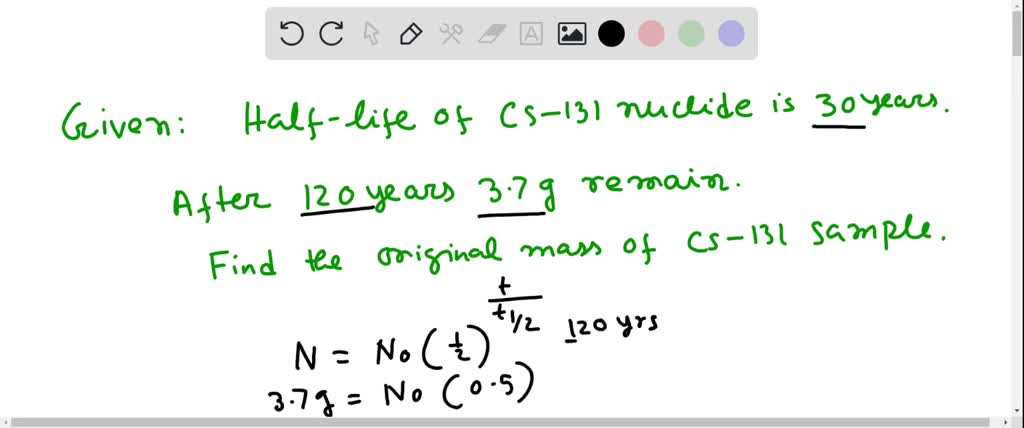 A
Given: Half-life of Cs-131 nuclide is 30 years.
After 120 years 3.7g remain.
Find the original mass of Cs-131 sample.
N = No (1/2)^(t/t1/2) 120 yrs
3.7g = No (0.5)